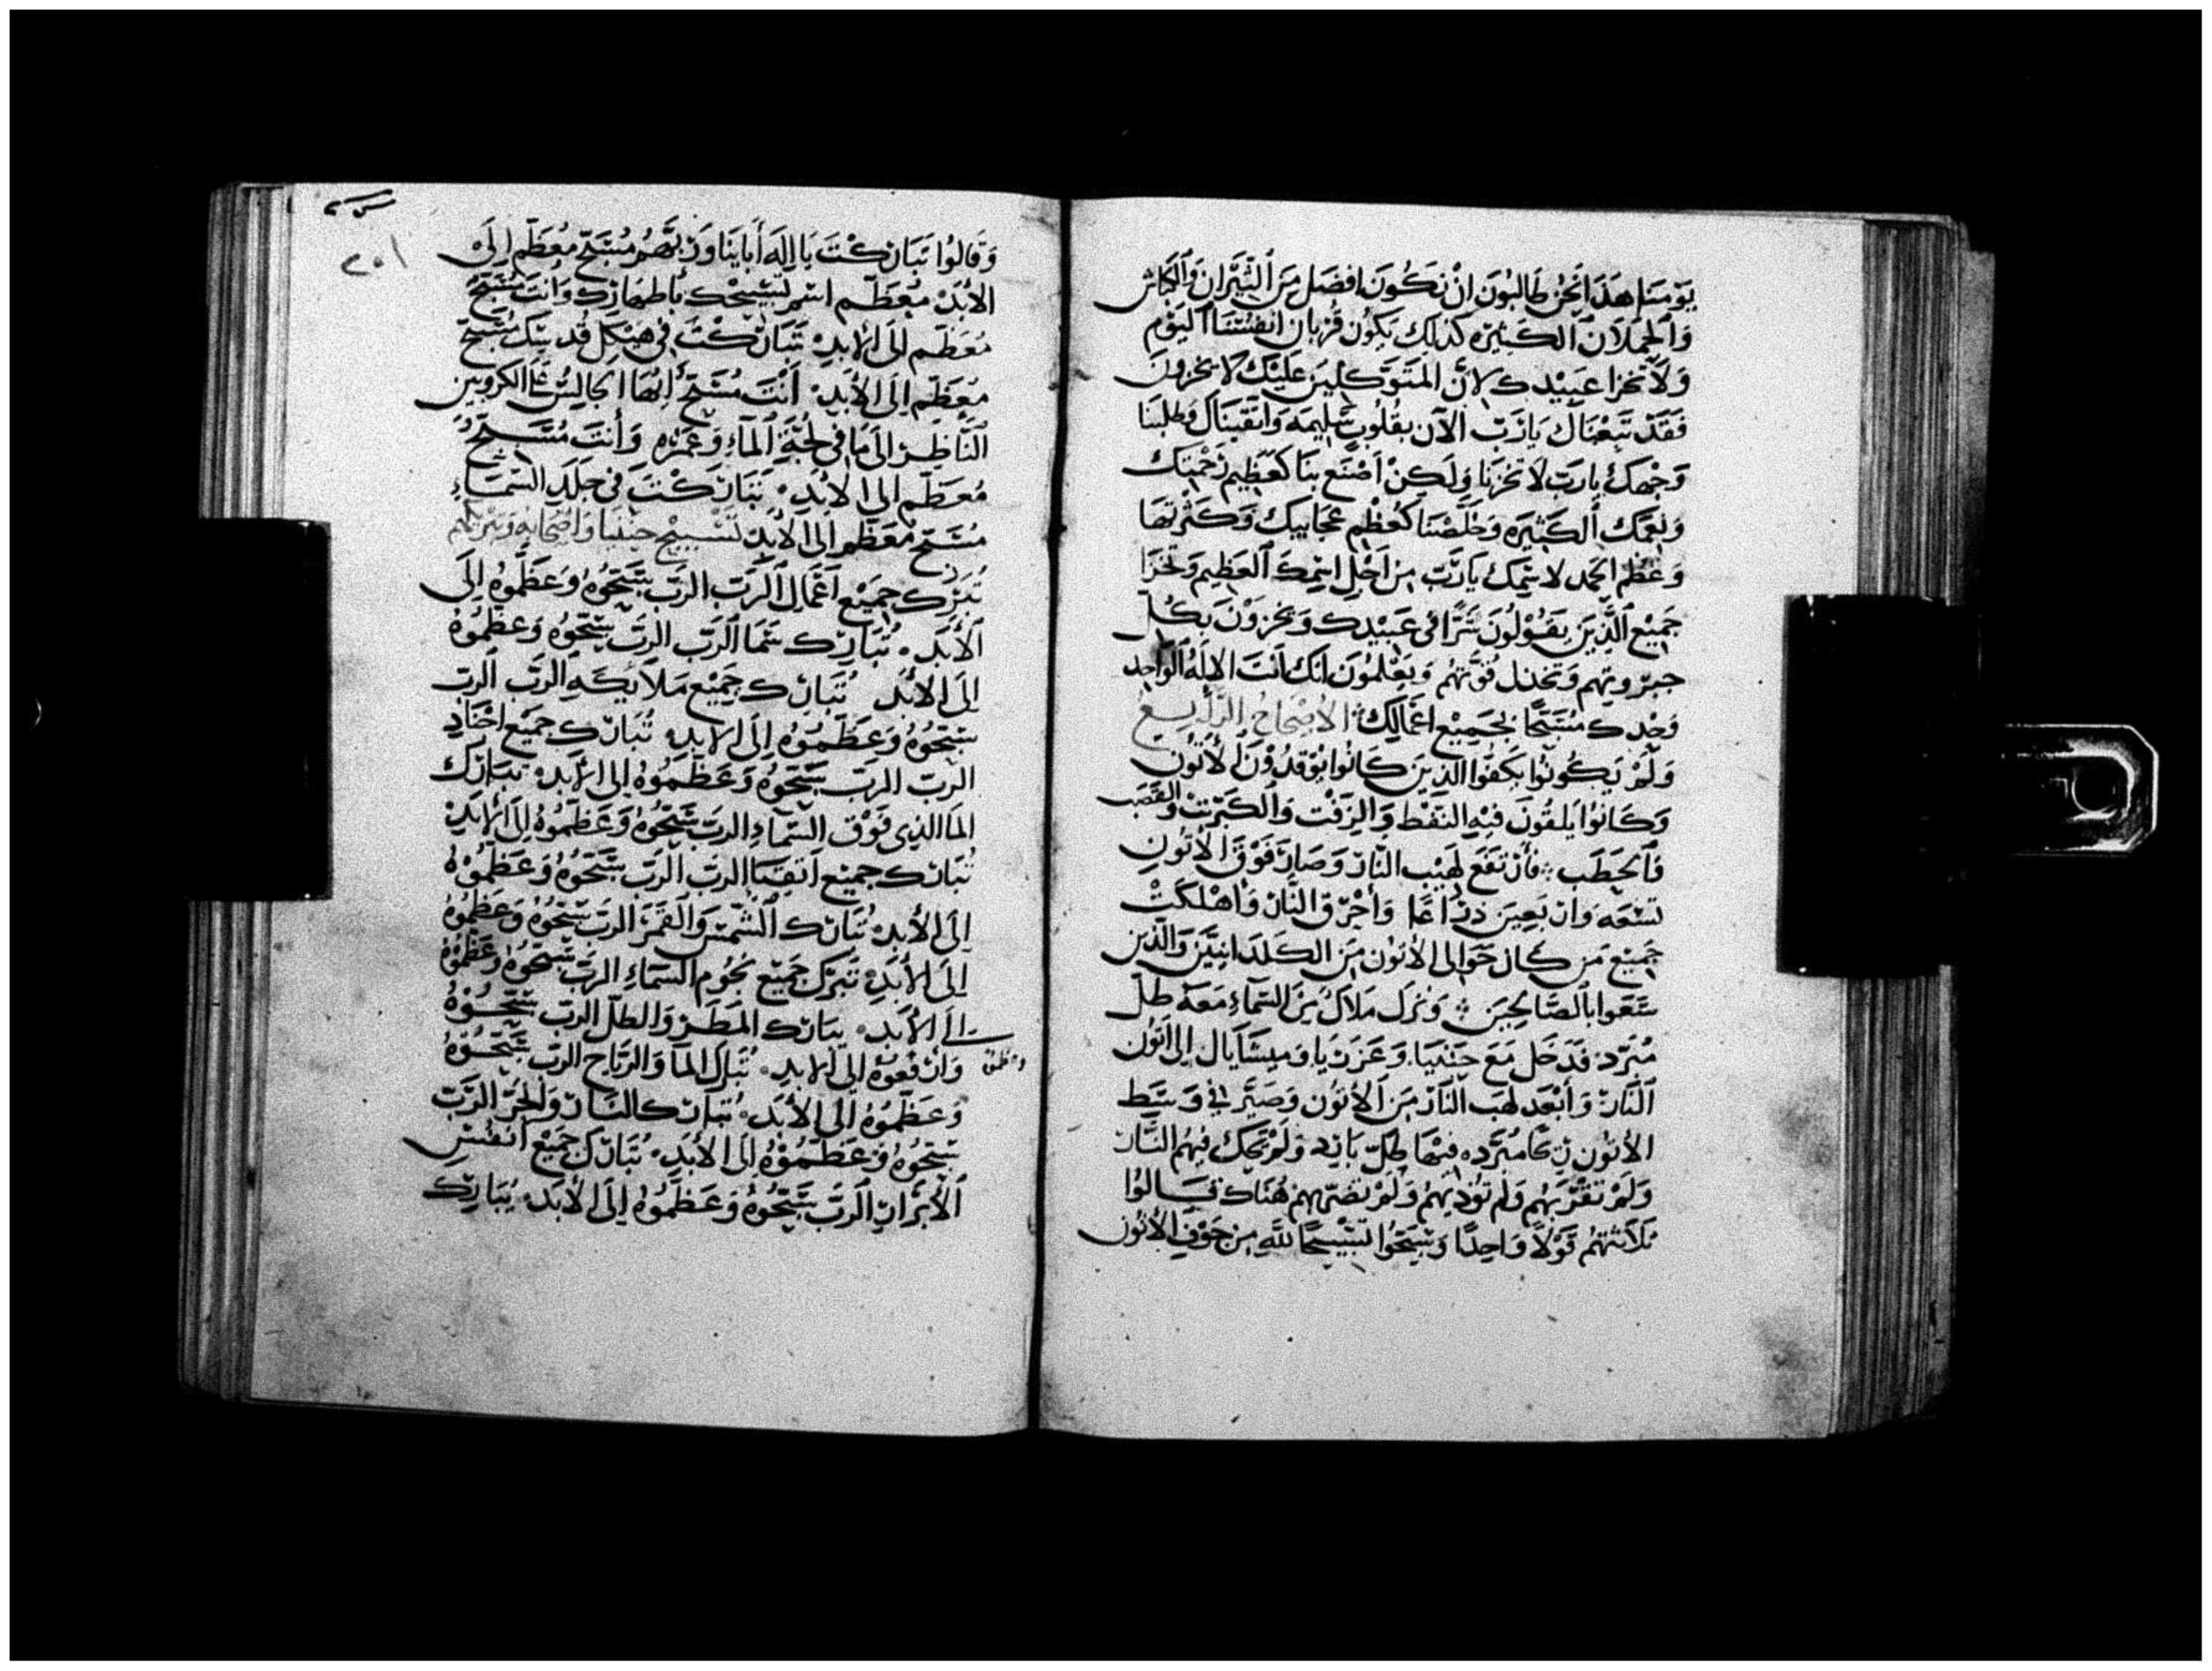 يَوْمَنَا هَذَا نَحْنُ طَالِبُونَ انْ نَكُونَ افضَل مَن الثيَران وَالكباش
وَالحملَان الكَثيره كَذلِك يَكوُن قُربان انفُسنَا اليَوْم
وَلَا تخزا عَبيْدك لانّ المتَوَكّلِينَ عَليْك لا يخزونَ
فَقَدْ تَبِعْنَاك يَارَبّ الآن بقُلُوبٍ سَليمَه وَاتقَينَاك وَطلبنَا
وَجْهكَ يارَبّ لَا تخزنَا وَلَكِنْ اصْنَع بنَا كعَظِيم رَحْمتِك
وَنِعَمك الكَثيرَه وَخلّصْنَا كعُظْمِ عَجَايبك وَكَثْرتهَا
وَعُظْم الحمد لاسْمك يَارَبّ مِن اَجْلِ اسْمِكَ العَظِيم وَتخزَا
جَميْع الّذِيَن يقُوْلُونَ شَرًّا في عَبيْدك وَيخزوْنَ بَكُلّ
جبرّوتِهم وَتخذل قُوَّتهُم وَيعْلمُونَ انك اَنتَ الالَهُ الوَاحِد
وَحْدك مُسَبّحًا بجَميْع اعْمَالِكَ الاصْحاحُ الرّابع
وَلَمْ يَكُونُوا يَكفُّوا الذينَ كَانُوا يوْقدُوْنَ الأتُون
وَكَانُوا يَلقُونَ فيْهِ النفْط وَالزفْت وَالكَبرْيت وَالقصَب
وَالحَطَب فَارْتفَع لَهيْب النّار وَصَارَ فَوْقَ الأتُون
تسْعَه وَاربَعِينَ ذرَاعًا وَاحْرَق النَّار وَاهْلكَتْ
جَميْعَ مَن كانَ حَوَالى الاتُون مَن الكَلدَانيّيَن وَالّذين
سَعَوا بالصّالحِينَ وَنزَل مَلاَكٌ مِنَ السّماءِ مَعَهُ طلّ
مُبَرّد فَدَخَل مَعَ حَننيا وَعَزَريَا وَميسَايال الى اتون
النَّار وَأبْعَد لهَب النَّار مَن الأتُون وَصَيَّر في وَسَط
الاتُون ريحًا مبَرّده فيهَا طلّ بَارِد وَلَمْ تحرك فيهُم النَّار
وَلَمْ تقرَبهُم وَلَم تُؤذِيْهمُ وَلَمْ تضرّهم هُنَاك فَقَالُوا
ثلَاثتهُم قَوْلًا وَاحِدًا وَسَبّحوُا تسْبيْحًا لله مِن جَوْفِ الأتُون
٢٥١
وَقَالُوا تبَارَكْتَ يَا اِلَه أبَاينَا وَربّهُم مُسَبّح مُعَظّم الَى
الأبَد مُعَظّم اسْم تسْبيْحك بأطهَارك وَانتَ مُسَبّح
مُعَظم الَى الأبَدِ تَبَارَكْتَ في هيْكل قُدسِك مُسَبّح
مُعَظّم اِلَى الأبَدِ اَنْتَ مُسَبّح أيّهَا الجالِسُ عَلى الكروبين
النَّاظِر الىَ مَا في لجَّةِ المآءِ وَعُمْقه وَأنتَ مُسَبّح
مُعَظّم الى الابَد تَبَارَكْتَ فى جلَد السّمَاءِ
مُسَبّح مُعَظّم الى الأبَدِ تَسْبيْح حننيا وَاصْحَابه وَتبرّكهم
تُبَارِك جَميْع اعْمَالِ الرّبّ الرّبّ سَبّحُوهُ وَعَظّموُهُ الَى
الأبَد تُبَاركُ سَمَا الرّبّ الربّ سَبّحُوهُ وَعَظّمُوهُ
اِلَى الأبَد تُبَاركُ جَميْع مَلاَئِكَه الربّ الربّ
سَبّحُوهُ وَعَظّمُوهُ الى الابدِ تُبَاركُ جمَيْع اجْنَادِ
الربّ الربّ سَبّحُوهُ وَعَظّمُوهُ الى الأبَد تبَارك
الَما الذِى فَوْق السّماءِ الربّ سَبّحُوهُ وَعَظّمُوهُ اِلَى الأبَدِ
تُبَارك جميْع اتقيَا الربّ الربّ سَبّحُوهُ وَعَظّمُوْهُ
اِلَى الأبَدِ تُبَارك الشّمْس وَالقَمَر الربّ سَبّحُوهُ وَعَظّمُوهُ
الَى الأبَدِ تبَرك جَميْع نجُوم السّماءِ الربّ سَبّحُوهُ وَعَظّمُوهُ
الى الأبَد يبَارك المَطَر وَالطلّ الربّ سَبّحُوهُ
وَارْفَعُوهُ الى الابَدِ تُبَارك المآ وَالرّيَاح الربّ سَبّحُوهُ
وَعظموهُ
وَعَظّمُوهُ الى الأبَد تُبَارك النَّار وَالحرّ الرّبّ
سَبّحُوهُ وَعَظّمُوْهُ الَى الأبَدِ تُبَارك جَميْع انفُسْ
الأبْرَارِ الرّبّ سَبّحُوهُ وَعَظّمُوهُ اِلَى الأبَدِ يُبَاركُ